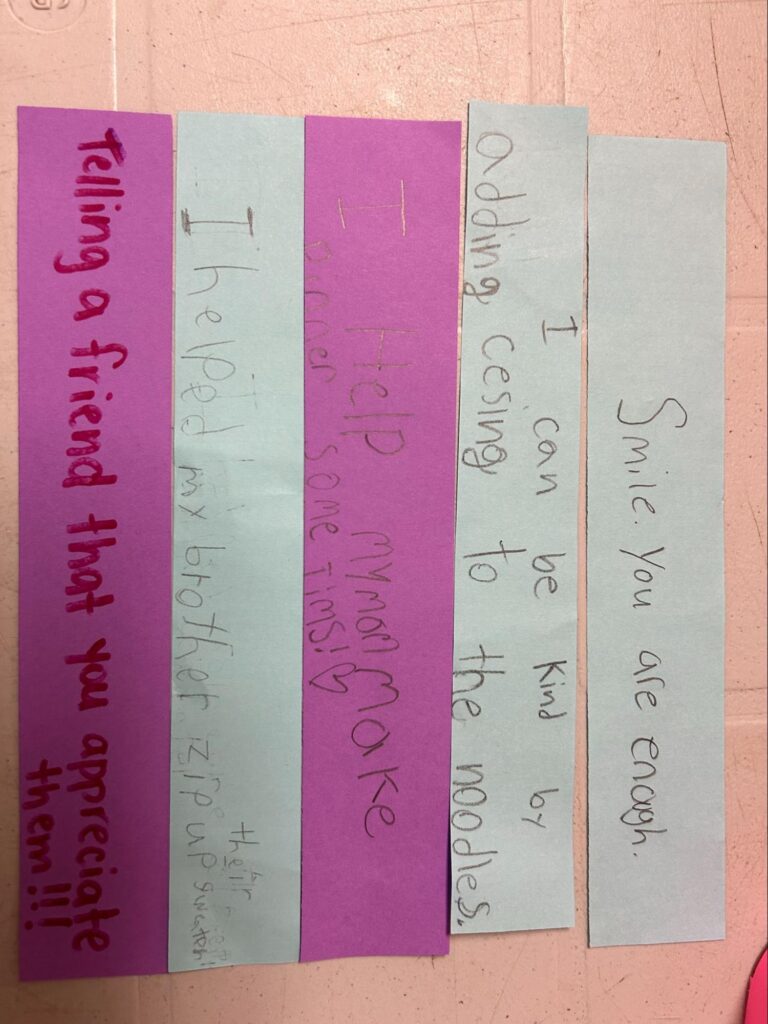 Smile. You are enough.
I can be kind by
adding cesing to the noodles.
I Help my mom Make
Dinner some Tims!
I helped my brother zip up
their
Telling a friend that you appreciate
them!!!